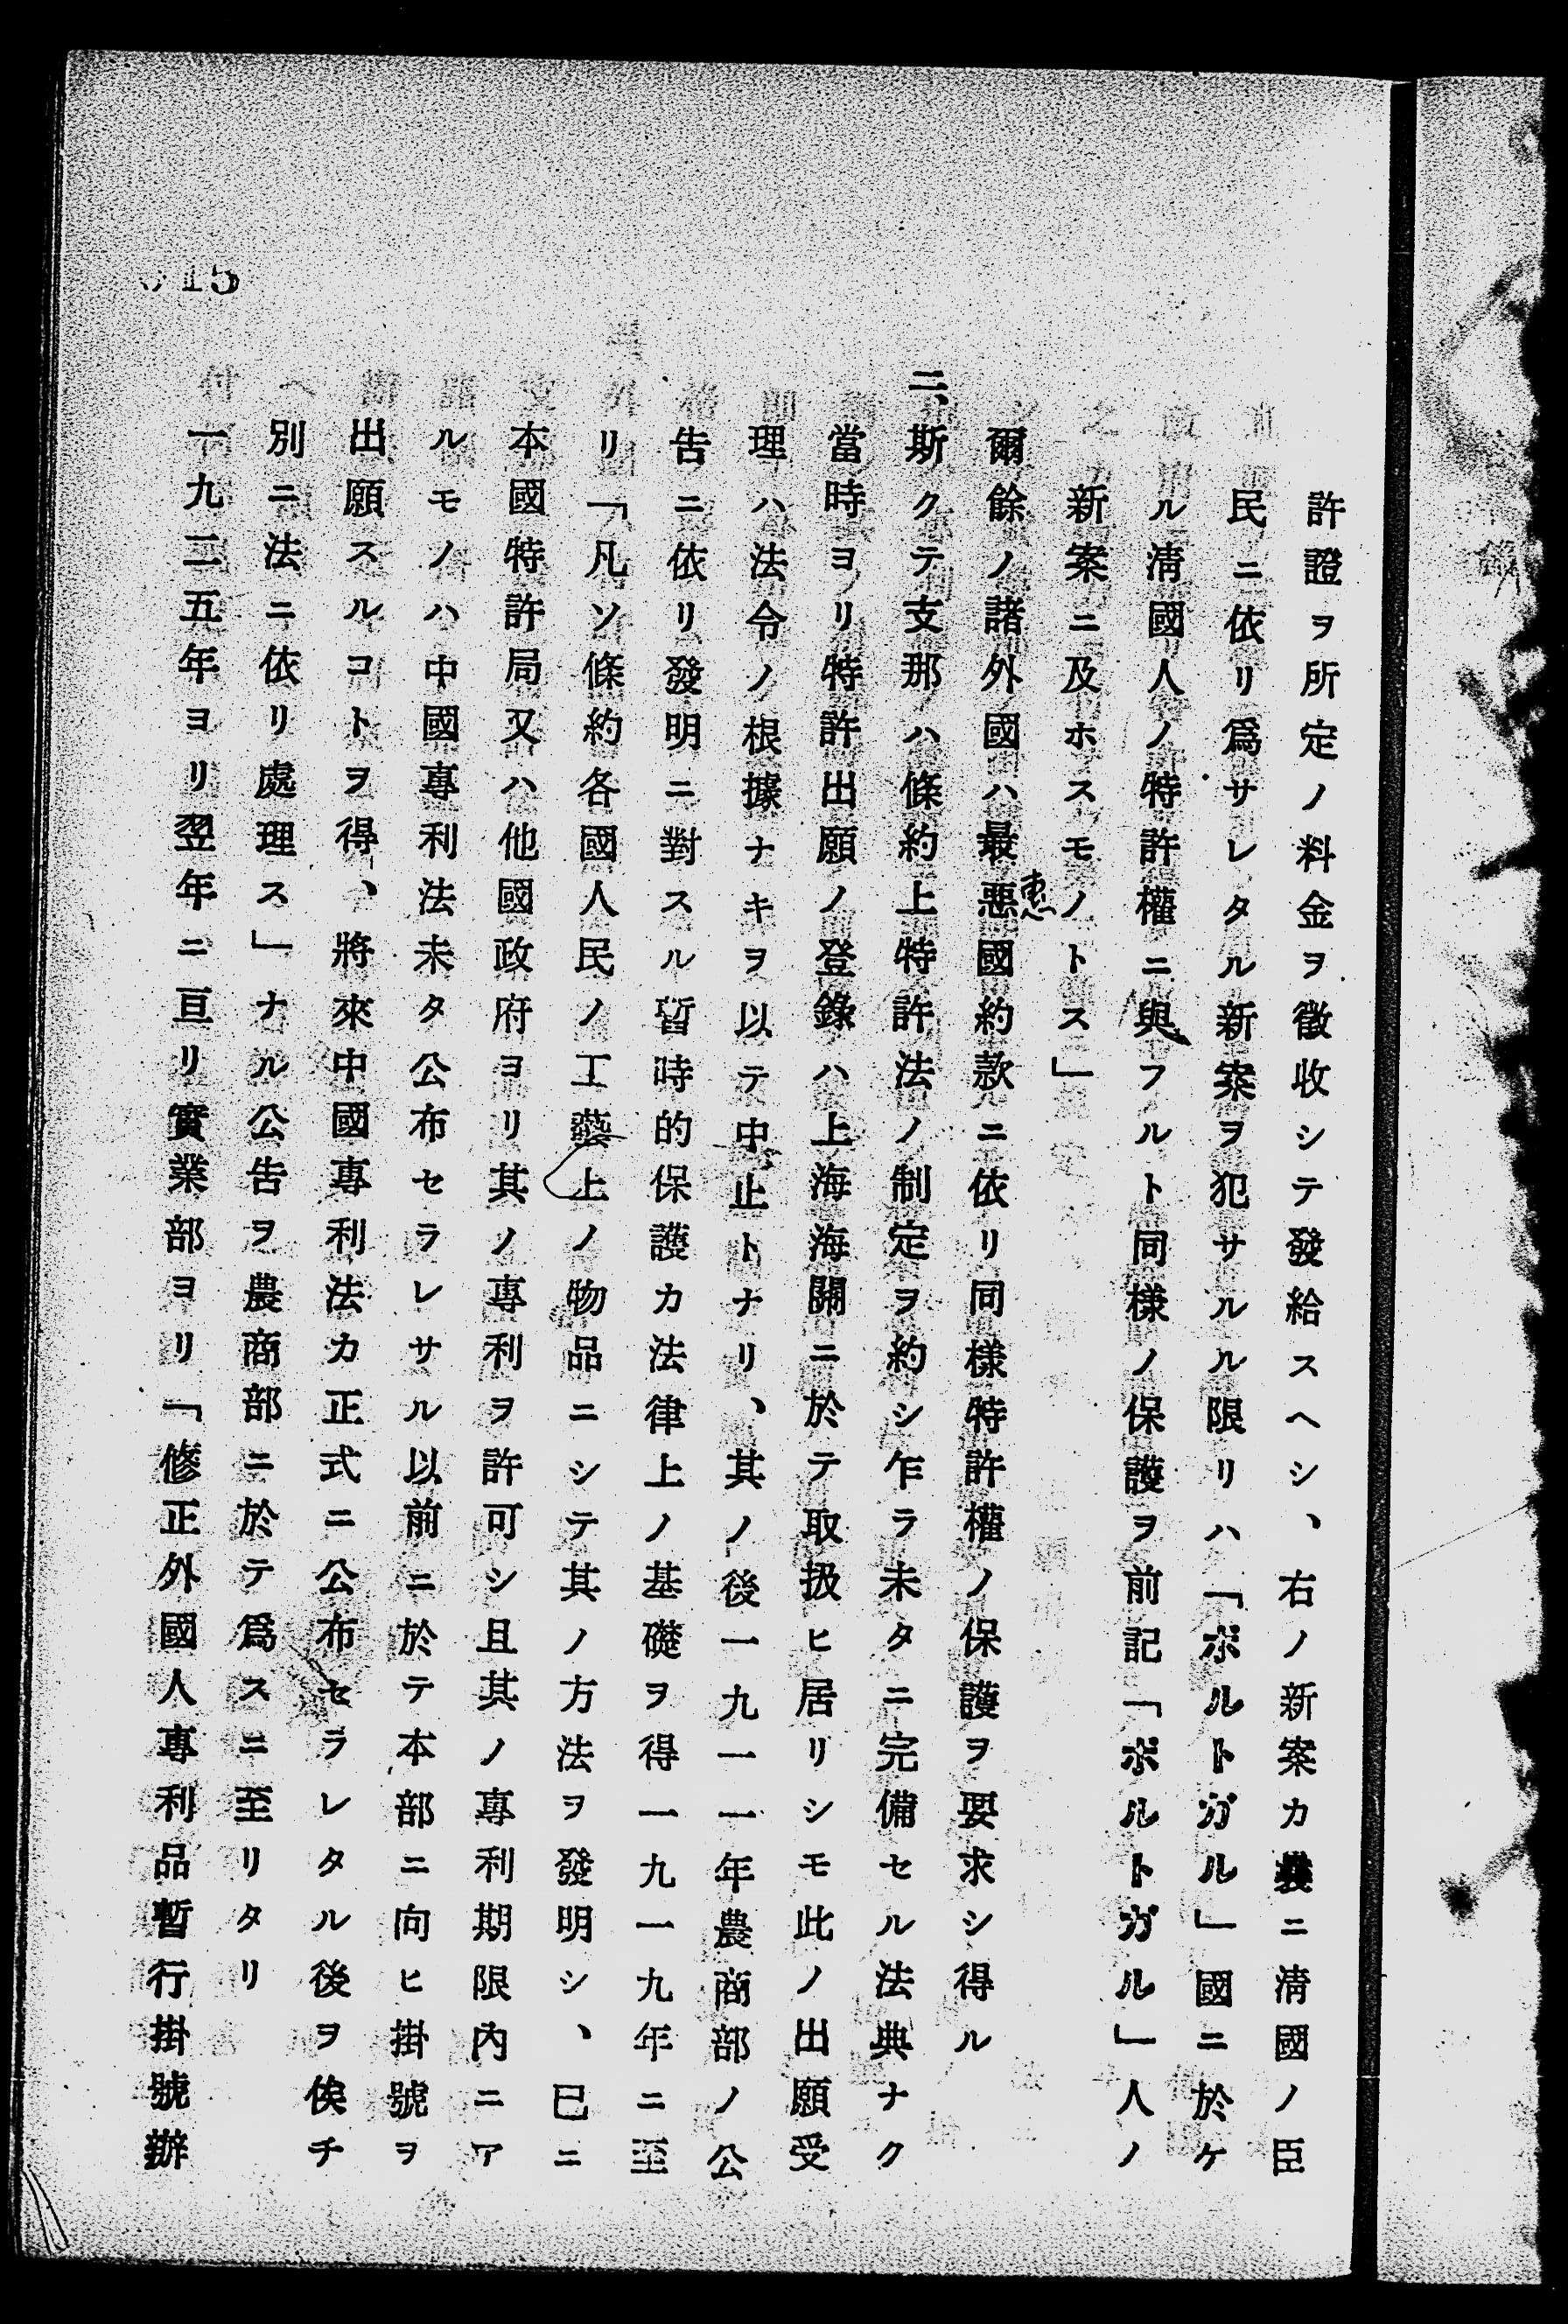 許證ヲ所定ノ料金ヲ徵收シテ發給スヘシ、右ノ新案カ曩ニ淸國ノ臣
民ニ依リ爲サレタル新案ヲ犯サルル限リハ「ポルトガル」國ニ於ケ
ル淸國人ノ特許權ニ與フルト同樣ノ保護ヲ前記「ポルトガル」人ノ
新案ニ及ホスモノトス」
爾餘ノ諸外國ハ最惡國約款ニ依リ同樣特許權ノ保護ヲ要求シ得ル
惠
二、斯クテ支那ハ條約上特許法ノ制定ヲ約シ乍ラ未タニ完備セル法典ナク
當時ヨリ特許出願ノ登錄ハ上海海關ニ於テ取扱ヒ居リシモ此ノ出願受
理ハ法令ノ根據ナキヲ以テ中止トナリ、其ノ後一九一一年農商部ノ公
告ニ依リ發明ニ對スル暫時的保護カ法律上ノ基礎ヲ得一九一九年ニ至
リ「凡ソ條約各國人民ノ工藝上ノ物品ニシテ其ノ方法ヲ發明シ、已ニ
本國特許局又ハ他國政府ヨリ其ノ專利ヲ許可シ且其ノ專利期限內ニア
ルモノハ中國專利法未タ公布セラレサル以前ニ於テ本部ニ向ヒ掛號ヲ
出願スルコトヲ得、將來中國專利法カ正式ニ公布セラレタル後ヲ俟チ
別ニ法ニ依リ處理ス」ナル公告ヲ農商部ニ於テ爲スニ至リタリ
一九二五年ヨリ翌年ニ亘リ實業部ヨリ「修正外國人專利品暫行掛號辦
15